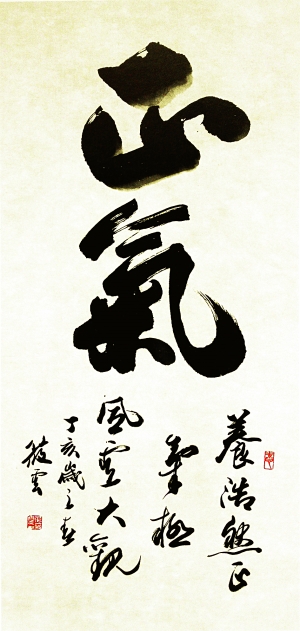 正氣
養浩然正
氣極
風雲大觀
丁亥歲之春
雲